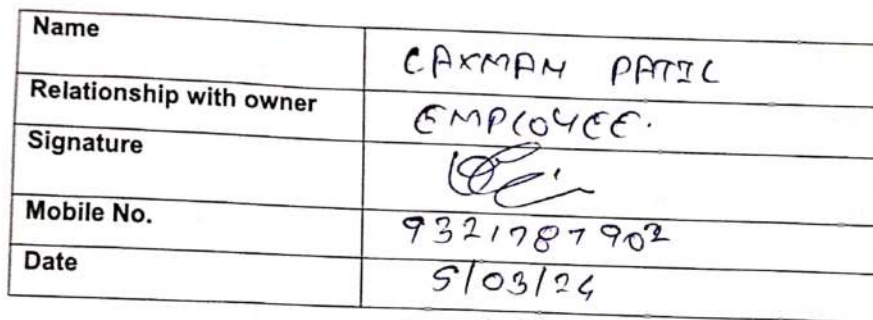 Name LAXMAN PATIL
Relationship with owner EMPLOYEE.
Signature
Mobile No. 9321787902
Date 5/03/24